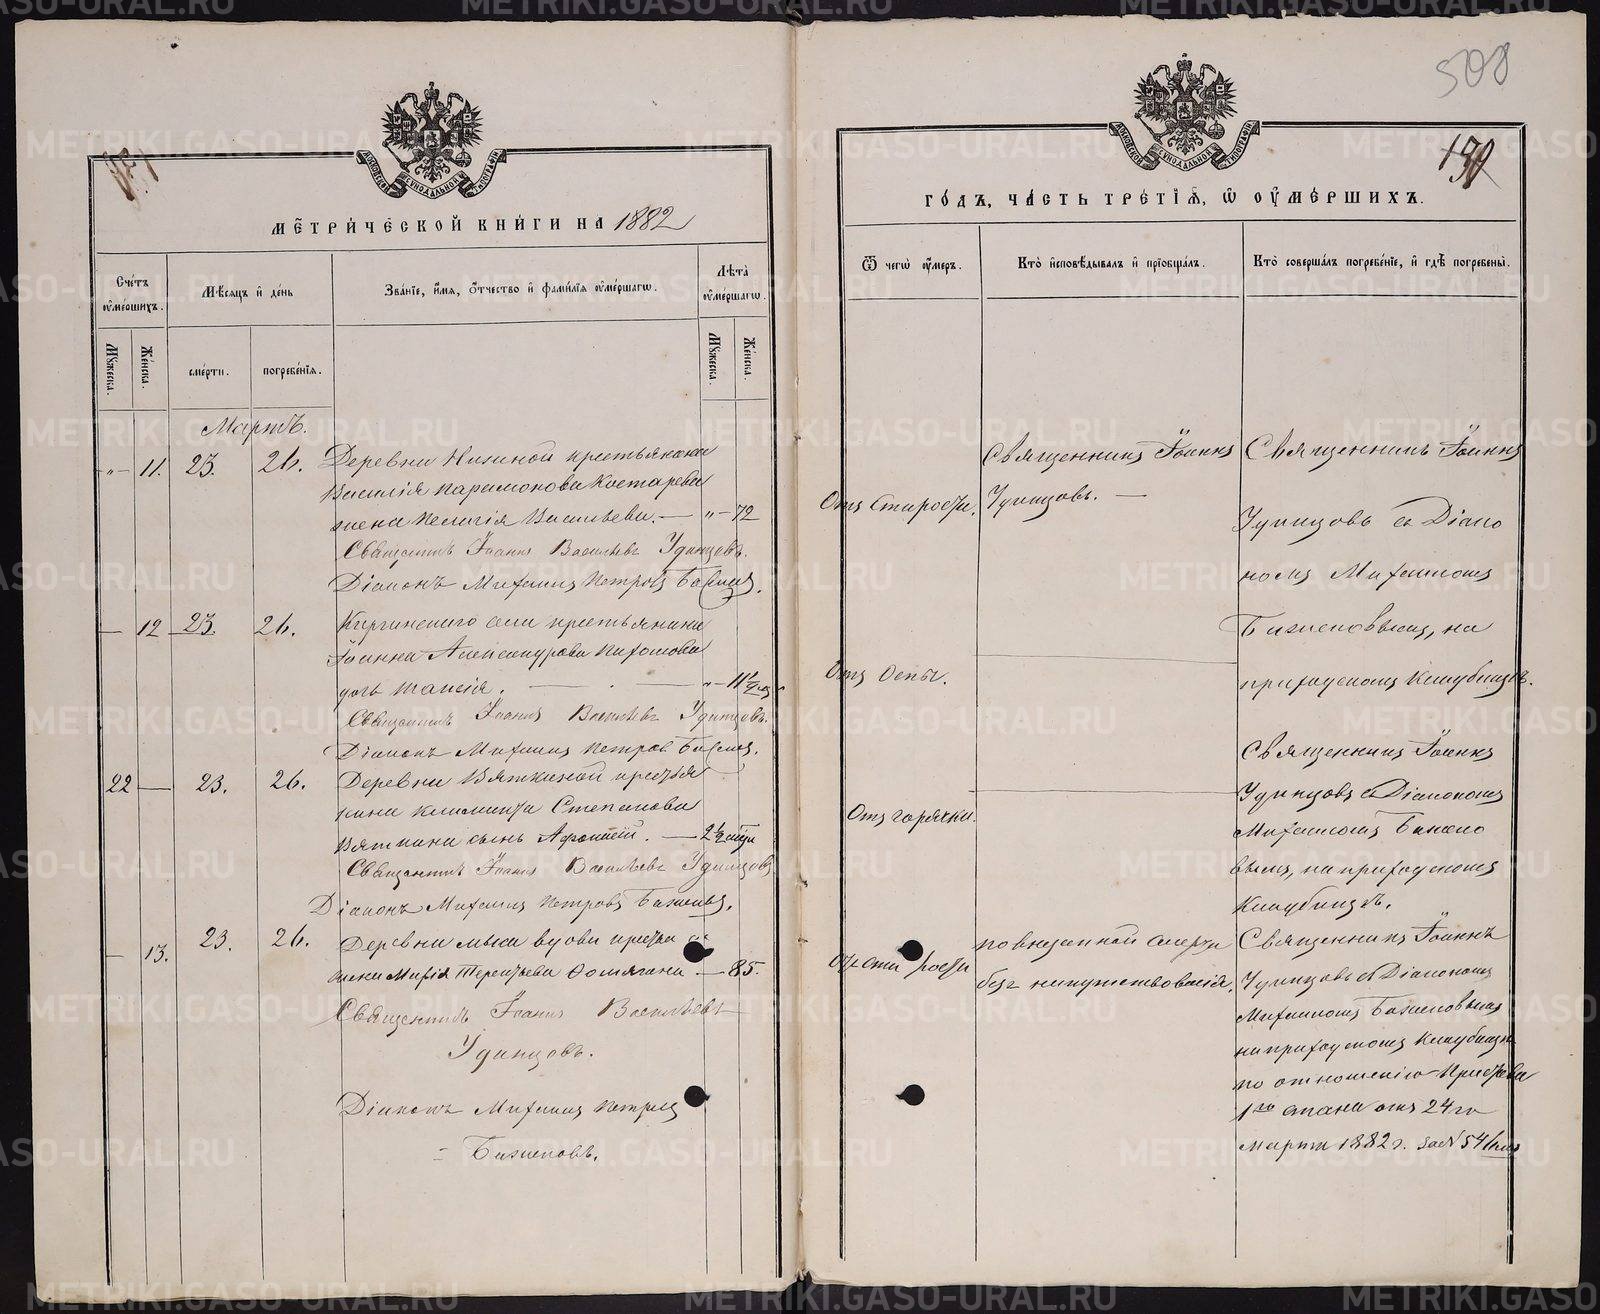 МЕТРИЧЕСКОЙ КНИГИ НА 1882
Счетъ оумершихъ.
Мужеска.
Женска.
Месяцъ и день
смерти.
погребенія.
Званіе, имя, отчество и фамилія оумершагω.
Лѣта оумершагω.
Мужеска.
Женска.
Мартъ.
" 11. 23. 26. Деревни Нисиной крестьянина
Василія Парамонова Костарева
жена Пелагія Васильева. — " — 72
Священникъ Іоаннъ Васильевъ Удинцовъ.
Діаконъ Михаилъ Петровъ Баженовъ.
— 12 23. 26. Киргинскаго села крестьянина
Іоанна Александрова Пахомова
дочь Таисія. — " — 11 1/2 мц
Священникъ Іоаннъ Васильевъ Удинцовъ.
Діаконъ Михаилъ Петровъ Баженовъ.
22 — 23. 26. Деревни Вяткиной крестья
нина Климента Степанова
Вяткина сынъ Афанасій. — 2 1/2 мѣся
Священникъ Іоаннъ Васильевъ Удинцовъ
Діаконъ Михаилъ Петровъ Баженовъ.
— 13. 23. 26. Деревни вдова крестьян
Марія Терентьева — 85.
Священникъ Іоаннъ Васильевъ
Удинцовъ.
Діаконъ Михаилъ Петровъ
= Баженовъ.
508
ГОДЪ, ЧАСТЬ ТРЕТІѦ, Ѡ ОУМЕРШИХЪ.
Ѿ чегω оумеръ.
Кто исповѣдывалъ и пріобщалъ.
Кто совершалъ погребеніе, и гдѣ погребены.
Отъ старости.
Священникъ Іоаннъ
Удинцовъ. —
Священникъ Іоаннъ
Удинцовъ съ Діако
номъ Михаиломъ
Баженовымъ, на
приходскомъ кладбищѣ.
Отъ оспы.
Священникъ Іоаннъ
Удинцовъ съ Діакономъ
Михаиломъ Бажено
вымъ, на приходскомъ
кладбищѣ.
Отъ горячки.
Отъ старости
по внезапной смерти
безъ напутствованія.
Священникъ Іоаннъ
Удинцовъ съ Діакономъ
Михаиломъ Баженовымъ
на приходскомъ кладбищѣ
по отношенію Пристава
1го стана отъ 24го
марта 1882 г. за №546
METRIKI.GASO-URAL.RU